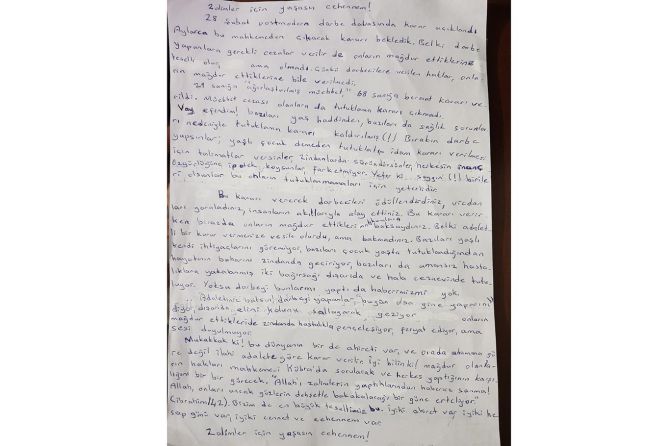 Zalimler için yaşasın cehennem!
28 Şubat postmodern darbe davasında karar açıklandı
Aylarca bu mahkemeden çıkacak kararı bekledik. Belki darbe
yapanlara gerekli cezalar verilir de onların mağdur ettiklerine
teselli olur, ama olmadı. Çünkü darbecilere verilen haklar, onla
rın mağdur ettiklerine bile verilmedi.
21 sanığa "ağırlaştırılmış müebbet" 68 sanığa beraat kararı ve
rildi. Müebbet cezası alanlara da tutuklama kararı çıkmadı.
Vay efendim! bazıları yaş haddinden, bazıları da sağlık sorunlar
ı nedeniyle tutuklama kararı kaldırılmış(!) Bırakın darbe
yapsınlar; yaşlı çocuk demeden tutuklatıp idam kararı verilmesi
için talimatlar versinler, zindanlarda süründürsünler, herkesin inanç
özgürlüğüne ipotek koysunlar farketmiyor. Yeter ki... saygın(!) birile
ri olsunlar bu onların tutuklanmamaları için yeterlidir.
Bu kararı vererek darbecileri ödüllendirdiniz, vicdan
ları yaraladınız, insanların akıllarıyla alay ettiniz. Bu kararı verir
ken biraz da onların mağdur ettikleri baksaydınız. Belki adalet
li bir karar vermenize vesile olurdu, ama bakmadınız. Bazıları yaşlı
kendi ihtiyaçlarını göremiyor, bazıları çocuk yaşta tutuklandığından
hayatının baharını zindanda geçiriyor, bazıları da amansız hasta
lıklara yakalanmış iki bağırsağı dışarıda ve hala cezaevinde tutu
luyor. Yoksa darbeyi bunlar mı yaptı da haberimiz mi yok.
Adaletinize bakın! darbeyi yapanlar, "bugün olsa gine yaparım"
diğor, dışarıda elini kolunu sallayarak geziyor onların
mağdur ettikleri de zindanda hastalıkla pençeleşiyor, feryat ediyor, ama
sesi duyulmuyor.
Muhakkak ki! bu dünyanın bir de ahireti var, ve orada atanana gö
re değil ilahi adalete göre karar verilir. İyi bilin ki! mağdur olanla
rın hakları mahkeme-i Kübra'da sorulacak ve herkes yaptığının karşı
lığını bir bir görecek. "Allah'ı, zalimlerin yaptıklarından habersiz sanma!
Allah, onları ancak gözlerin dehşetle bakakalacağı bir güne erteliyor."
(İbrahim/42). Bizim de en büyük tesellimiz bu. İyi ki ahiret var, iyi ki he
sap günü var, iyi ki cennet ve cehennem var.
Zalimler için yaşasın cehennem!